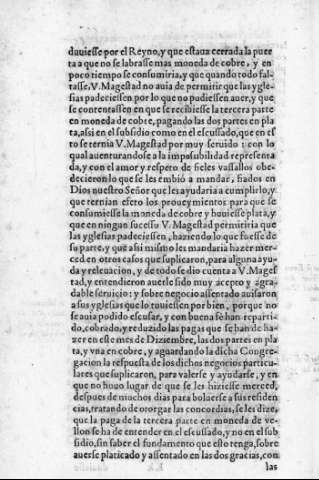 duuiesse por el Reyno, y que estaua cerrada la puer
ta a que no se labrasse mas moneda de cobre, y en
poco tiempo se consumiria, y que quando todo fal-
tasse, V. Magestad no auia de permitir que las ygle-
sias padeciessen por lo que no pudiessen auer, y que
se contentassen en que se recibiesse la tercera parte
en moneda de cobre, pagando las dos partes en pla
ta, assi en el subsidio como en el escussado, que en es
to se ternia V. Magestad por muy seruido: con lo
qual auenturandose a la impossibilidad representa
da, y con el amor y respeto de fieles vassallos obe-
decieron lo que se les embió a mandar, fiados en
Dios nuestro Señor que les ayudaria a cumplirlo, y
que ternian efeto los proueymientos para que se
consumiesse la moneda de cobre y huuiesse plata, y
que en ningun sucesso V. Magestad permitiria que
las yglesias padeciessen, haziendo lo que fuesse de
su parte, y que assi mismo les mandaria hazer mer-
ced en otros casos que suplicaron, para alguna ayu-
da y releuacion, y de todo se dio cuenta a V. Mages
tad, y entendieron auerle sido muy acepto y agra-
dable seruicio: y sobre negocio assentado auisaron
a sus yglesias que lo tuuiessen por bien, porque no
se auia podido escusar, y con buena fè han reparti-
do, cobrado, y reduzido las pagas que se han de ha-
zer en este mes de Diziembre, las dos partes en pla
ta, y vna en cobre, y aguardando la dicha Congre-
gacion la respuesta de los dichos negocios particu-
lares que suplicaron, para valerse y ayudarse, y en
que no huuo lugar de que se les hiziesse merced,
despues de muchos dias para boluerse a sus residen
cias, tratando de otorgar las concordias, se les dize,
que la paga de la tercera parte en moneda de ve-
llon se ha de entender en el escussado, y no en el sub
sidio, sin saber el fundamento que esto tenga, sobre
auerse platicado y assentado en las dos gracias, con
las